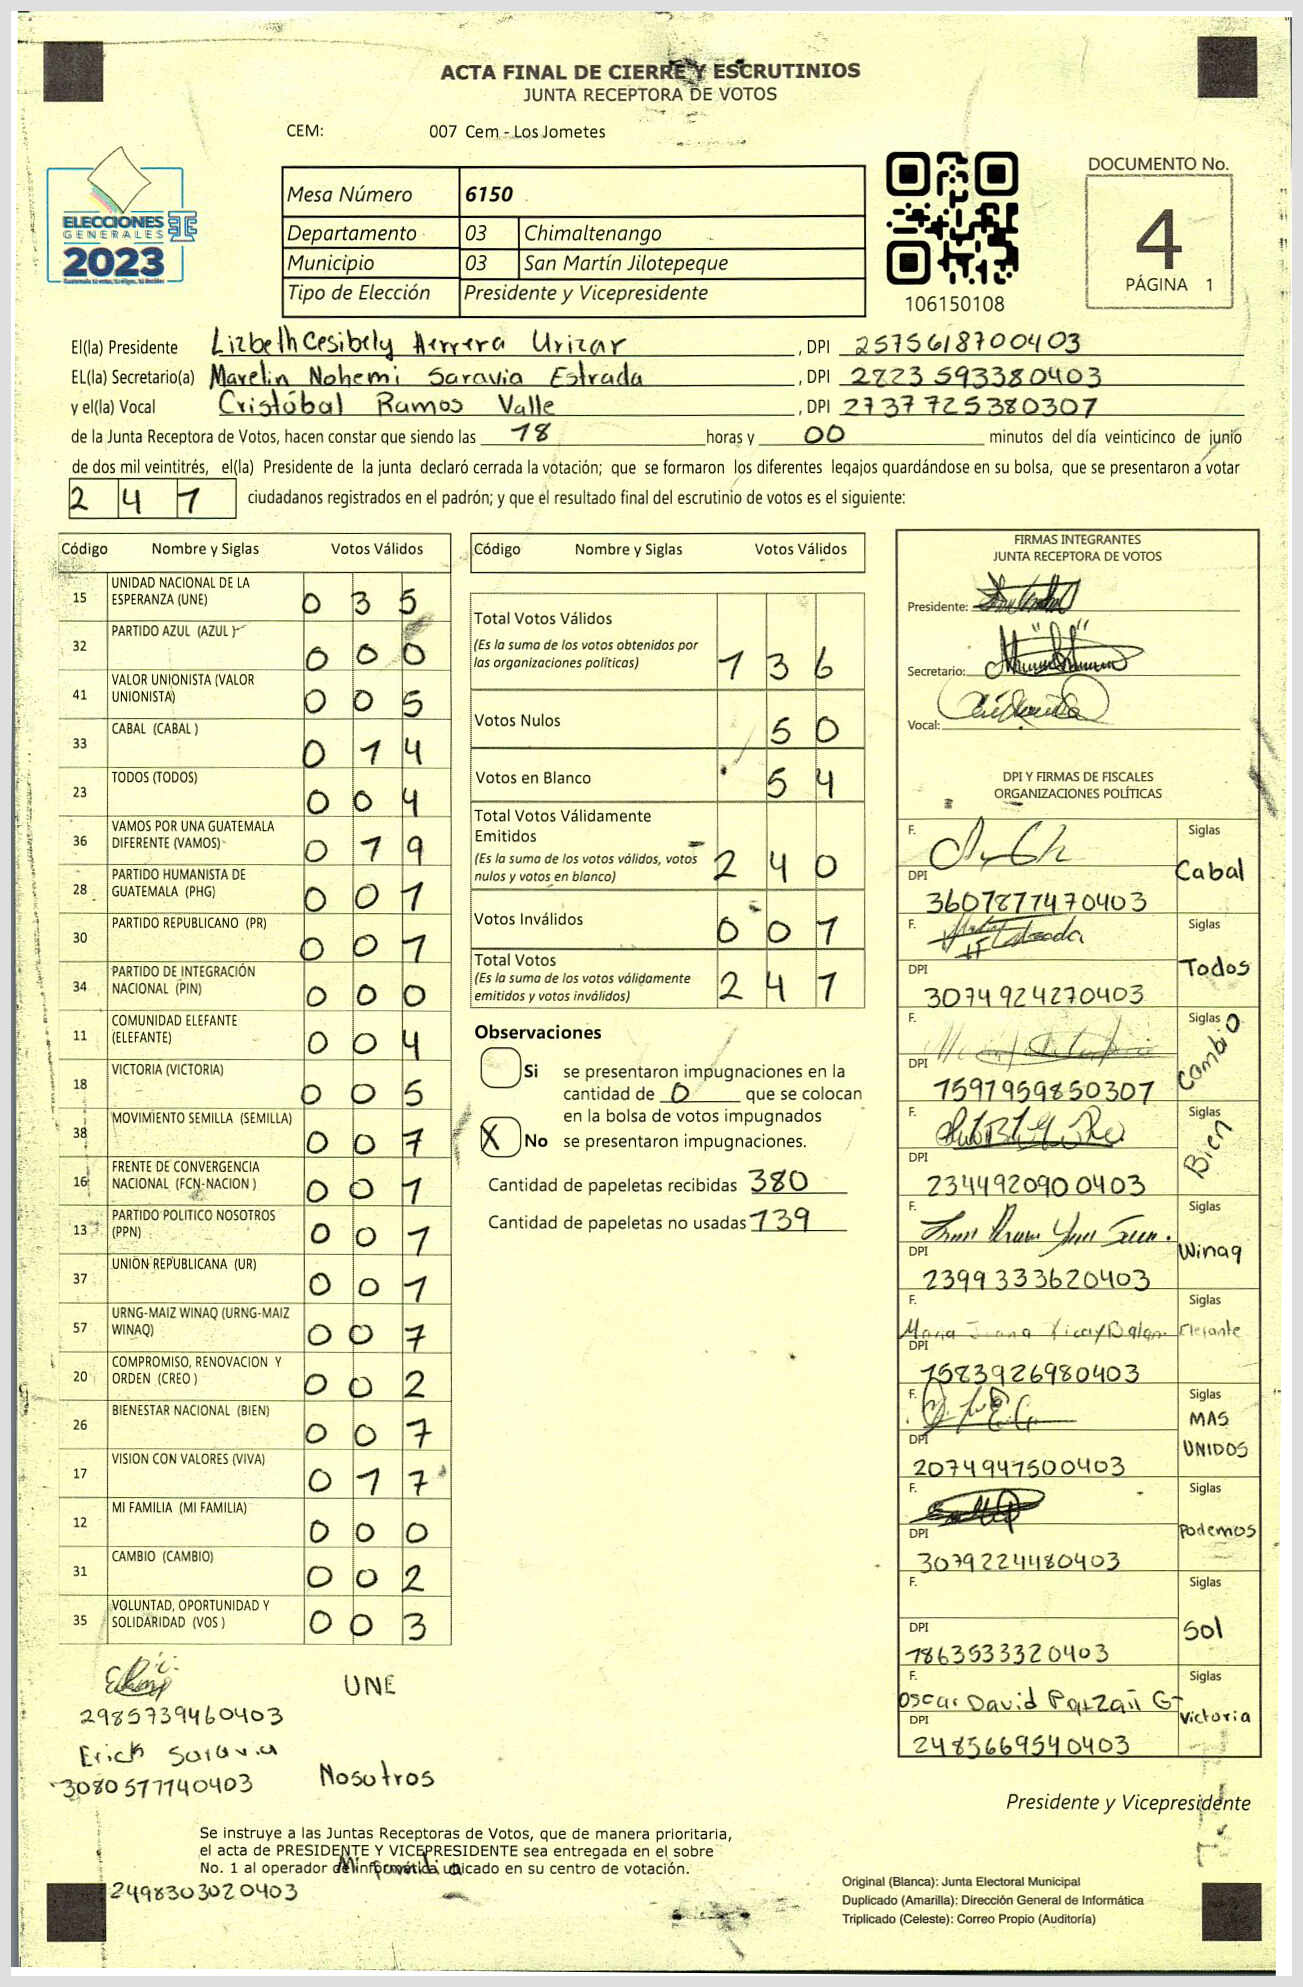 ACTA FINAL DE CIERRE Y ESCRUTINIOS
JUNTA RECEPTORA DE VOTOS
CEM: 007 Cem - Los Jometes
ELECCIONES
GENERALES
2023
Mesa Número 6150
Departamento 03 Chimaltenango
Municipio 03 San Martín Jilotepeque
Tipo de Elección Presidente y Vicepresidente
106150108
DOCUMENTO No.
4
PÁGINA 1
El(la) Presidente Lizbeth Cesibely Herrera Urizar, DPI 2575618700403
EL(la) Secretario(a) Marelin Nohemi Saravia Estrada, DPI 2823593380403
y el(la) Vocal Cristóbal Ramos Valle, DPI 2737725380307
de la Junta Receptora de Votos, hacen constar que siendo las 18 horas y 00 minutos del día veinticinco de junio
de dos mil veintitrés, el(la) Presidente de la junta declaró cerrada la votación; que se formaron los diferentes legajos guardándose en su bolsa, que se presentaron a votar
241 ciudadanos registrados en el padrón; y que el resultado final del escrutinio de votos es el siguiente:
Código Nombre y Siglas Votos Válidos
15 UNIDAD NACIONAL DE LA ESPERANZA (UNE) 035
32 PARTIDO AZUL (AZUL) 000
41 VALOR UNIONISTA (VALOR UNIONISTA) 005
33 CABAL (CABAL) 014
23 TODOS (TODOS) 004
36 VAMOS POR UNA GUATEMALA DIFERENTE (VAMOS) 019
28 PARTIDO HUMANISTA DE GUATEMALA (PHG) 001
30 PARTIDO REPUBLICANO (PR) 001
34 PARTIDO DE INTEGRACIÓN NACIONAL (PIN) 000
11 COMUNIDAD ELEFANTE (ELEFANTE) 004
18 VICTORIA (VICTORIA) 005
38 MOVIMIENTO SEMILLA (SEMILLA) 007
16 FRENTE DE CONVERGENCIA NACIONAL (FCN-NACION) 001
13 PARTIDO POLITICO NOSOTROS (PPN) 001
37 UNION REPUBLICANA (UR) 001
57 URNG-MAIZ WINAQ (URNG-MAIZ WINAQ) 007
20 COMPROMISO, RENOVACION Y ORDEN (CREO) 002
26 BIENESTAR NACIONAL (BIEN) 007
17 VISION CON VALORES (VIVA) 017
12 MI FAMILIA (MI FAMILIA) 000
31 CAMBIO (CAMBIO) 002
35 VOLUNTAD, OPORTUNIDAD Y SOLIDARIDAD (VOS) 003
Código Nombre y Siglas Votos Válidos
Total Votos Válidos
(Es la suma de los votos obtenidos por las organizaciones políticas) 136
Votos Nulos 50
Votos en Blanco 54
Total Votos Válidamente Emitidos
(Es la suma de los votos válidos, votos nulos y votos en blanco) 240
Votos Inválidos 001
Total Votos
(Es la suma de los votos válidamente emitidos y votos inválidos) 241
Observaciones
Si se presentaron impugnaciones en la
cantidad de 0 que se colocan
en la bolsa de votos impugnados
X No se presentaron impugnaciones.
Cantidad de papeletas recibidas 380
Cantidad de papeletas no usadas 139
FIRMAS INTEGRANTES
JUNTA RECEPTORA DE VOTOS
Presidente:
Secretario:
Vocal:
DPI Y FIRMAS DE FISCALES
ORGANIZACIONES POLÍTICAS
F. Siglas Cabal
DPI 3607877470403
F. Siglas Todos
DPI 3074924270403
F. Siglas Cambio
DPI 1597959850307
F. Siglas Bien
DPI 2344920900403
F. Siglas Winaq
DPI 2399333620403
F. Siglas Elefante
DPI 1583926980403
F. Siglas MAS UNIDOS
DPI 2074947500403
F. Siglas Podemos
DPI 3079224480403
F. Siglas Sol
DPI 1863533320403
F. Oscar David Siglas Victoria
DPI 2485669540403
UNE
2985739460403
Erick Saravia
3080577740403 Nosotros
Presidente y Vicepresidente
Se instruye a las Juntas Receptoras de Votos, que de manera prioritaria,
el acta de PRESIDENTE Y VICEPRESIDENTE sea entregada en el sobre
No. 1 al operador de informática ubicado en su centro de votación.
Mi familia
2498303020403
Original (Blanca): Junta Electoral Municipal
Duplicado (Amarilla): Dirección General de Informática
Triplicado (Celeste): Correo Propio (Auditoría)